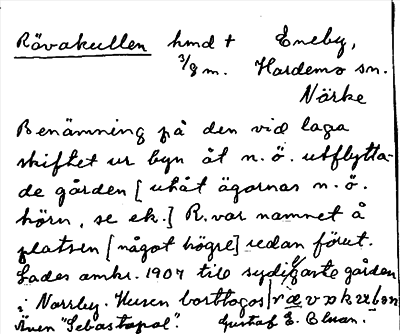 Rävakullen hmd + Eneby,
3/8 m. Hardemo sn.
Närke
Benämning på den vid laga
skiftet ur byn åt n.ö. utflytta-
de gården [utåt ägornas n.ö.
hörn, se ek.] R. var namnet å
platsen [något högre] redan förut.
Lades omkr. 1907 till sydligaste gården
i Norrby. Husen borttogos
Även "Sebastopol". Gustaf E.